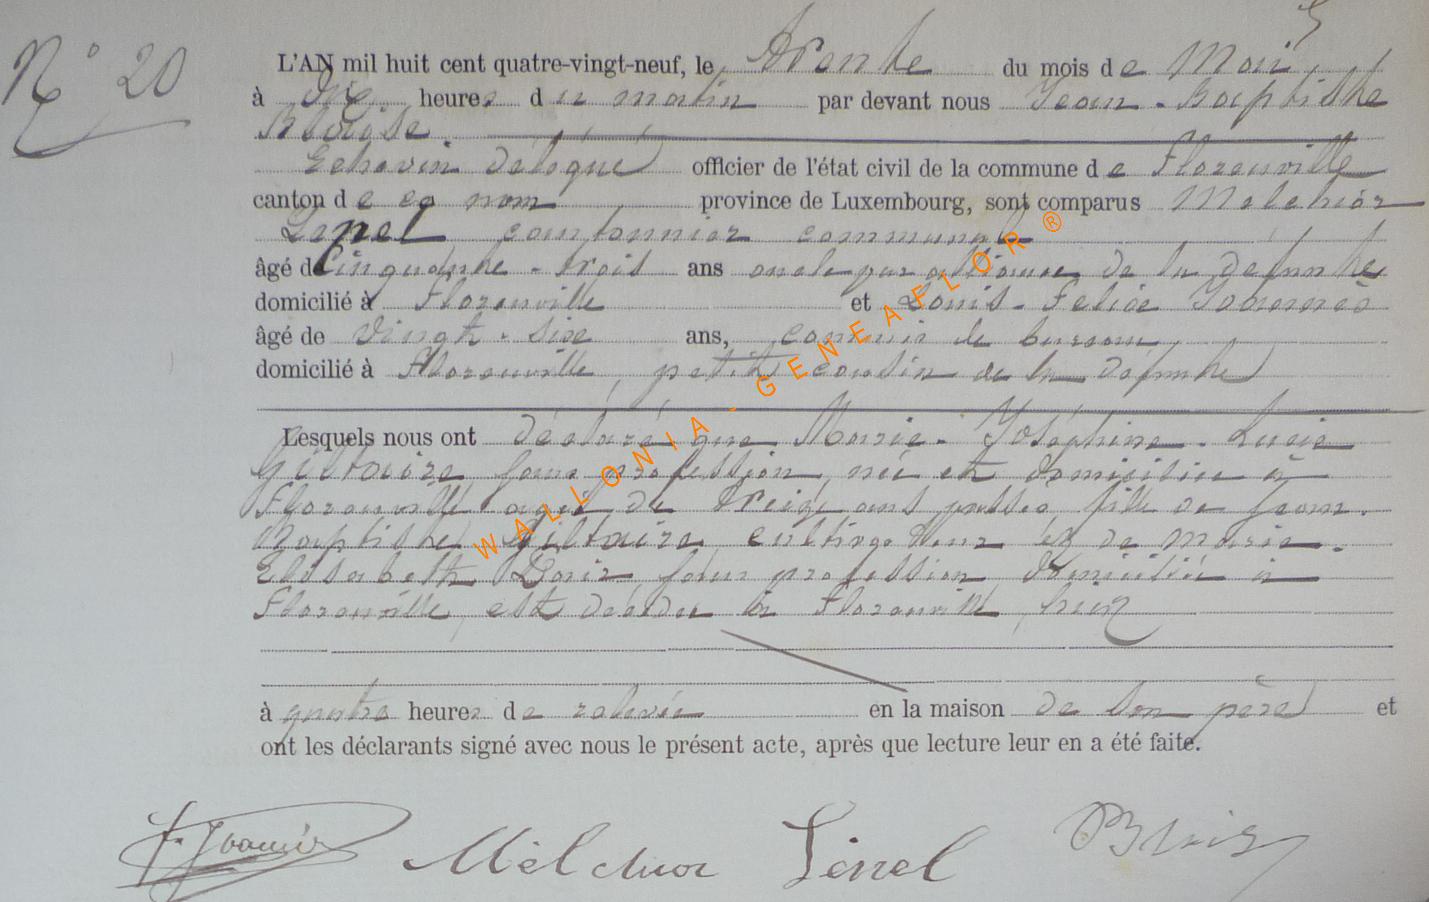 N° 20
L'AN mil huit cent quatre-vingt-neuf, le trente du mois de Mai,
à dix heures du matin par devant nous Jean-Baptiste
Blaise
Echevin délégué officier de l'état civil de la commune de Florenville
canton de ce nom province de Luxembourg, sont comparus Melchior
Lenel, cantonnier communal
âgé de Cinquante-trois ans oncle par alliance de la defunte
domicilié à Florenville et Louis-Felice
âgé de Vingt-six ans, commis de bureau,
domicilié à Florenville, petit cousin de la defunte
Lesquels nous ont déclaré que Marie-Joséphine-Lucie
Giltaire sans profession, née et domiciliée à
Florenville agée de treize ans passés fille de Jean-
Baptiste Giltaire, cultivateur et de Marie-
Elisabeth sans profession, domiciliée à
Florenville, est décédée à Florenville, hier
à quatre heures de relevée en la maison de son père et
ont les déclarants signé avec nous le présent acte, après que lecture leur en a été faite.
Melchior Lenel Blaise
WALLONIA - GENEAFLOR ®